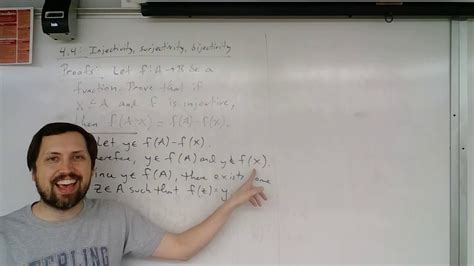 4.4: Injectivity, surjectivity, bijectivity
Proofs: Let f: A→B be a
function. Prove that if
X ⊆ A and f is injective,
then f(A-X) = f(A)-f(X).
Let y∈ f(A)-f(X).
Therefore, y∈ f(A) and y∉ f(X)
since y∈ f(A), there exists some
z∈A such that f(z)=y
STERLING